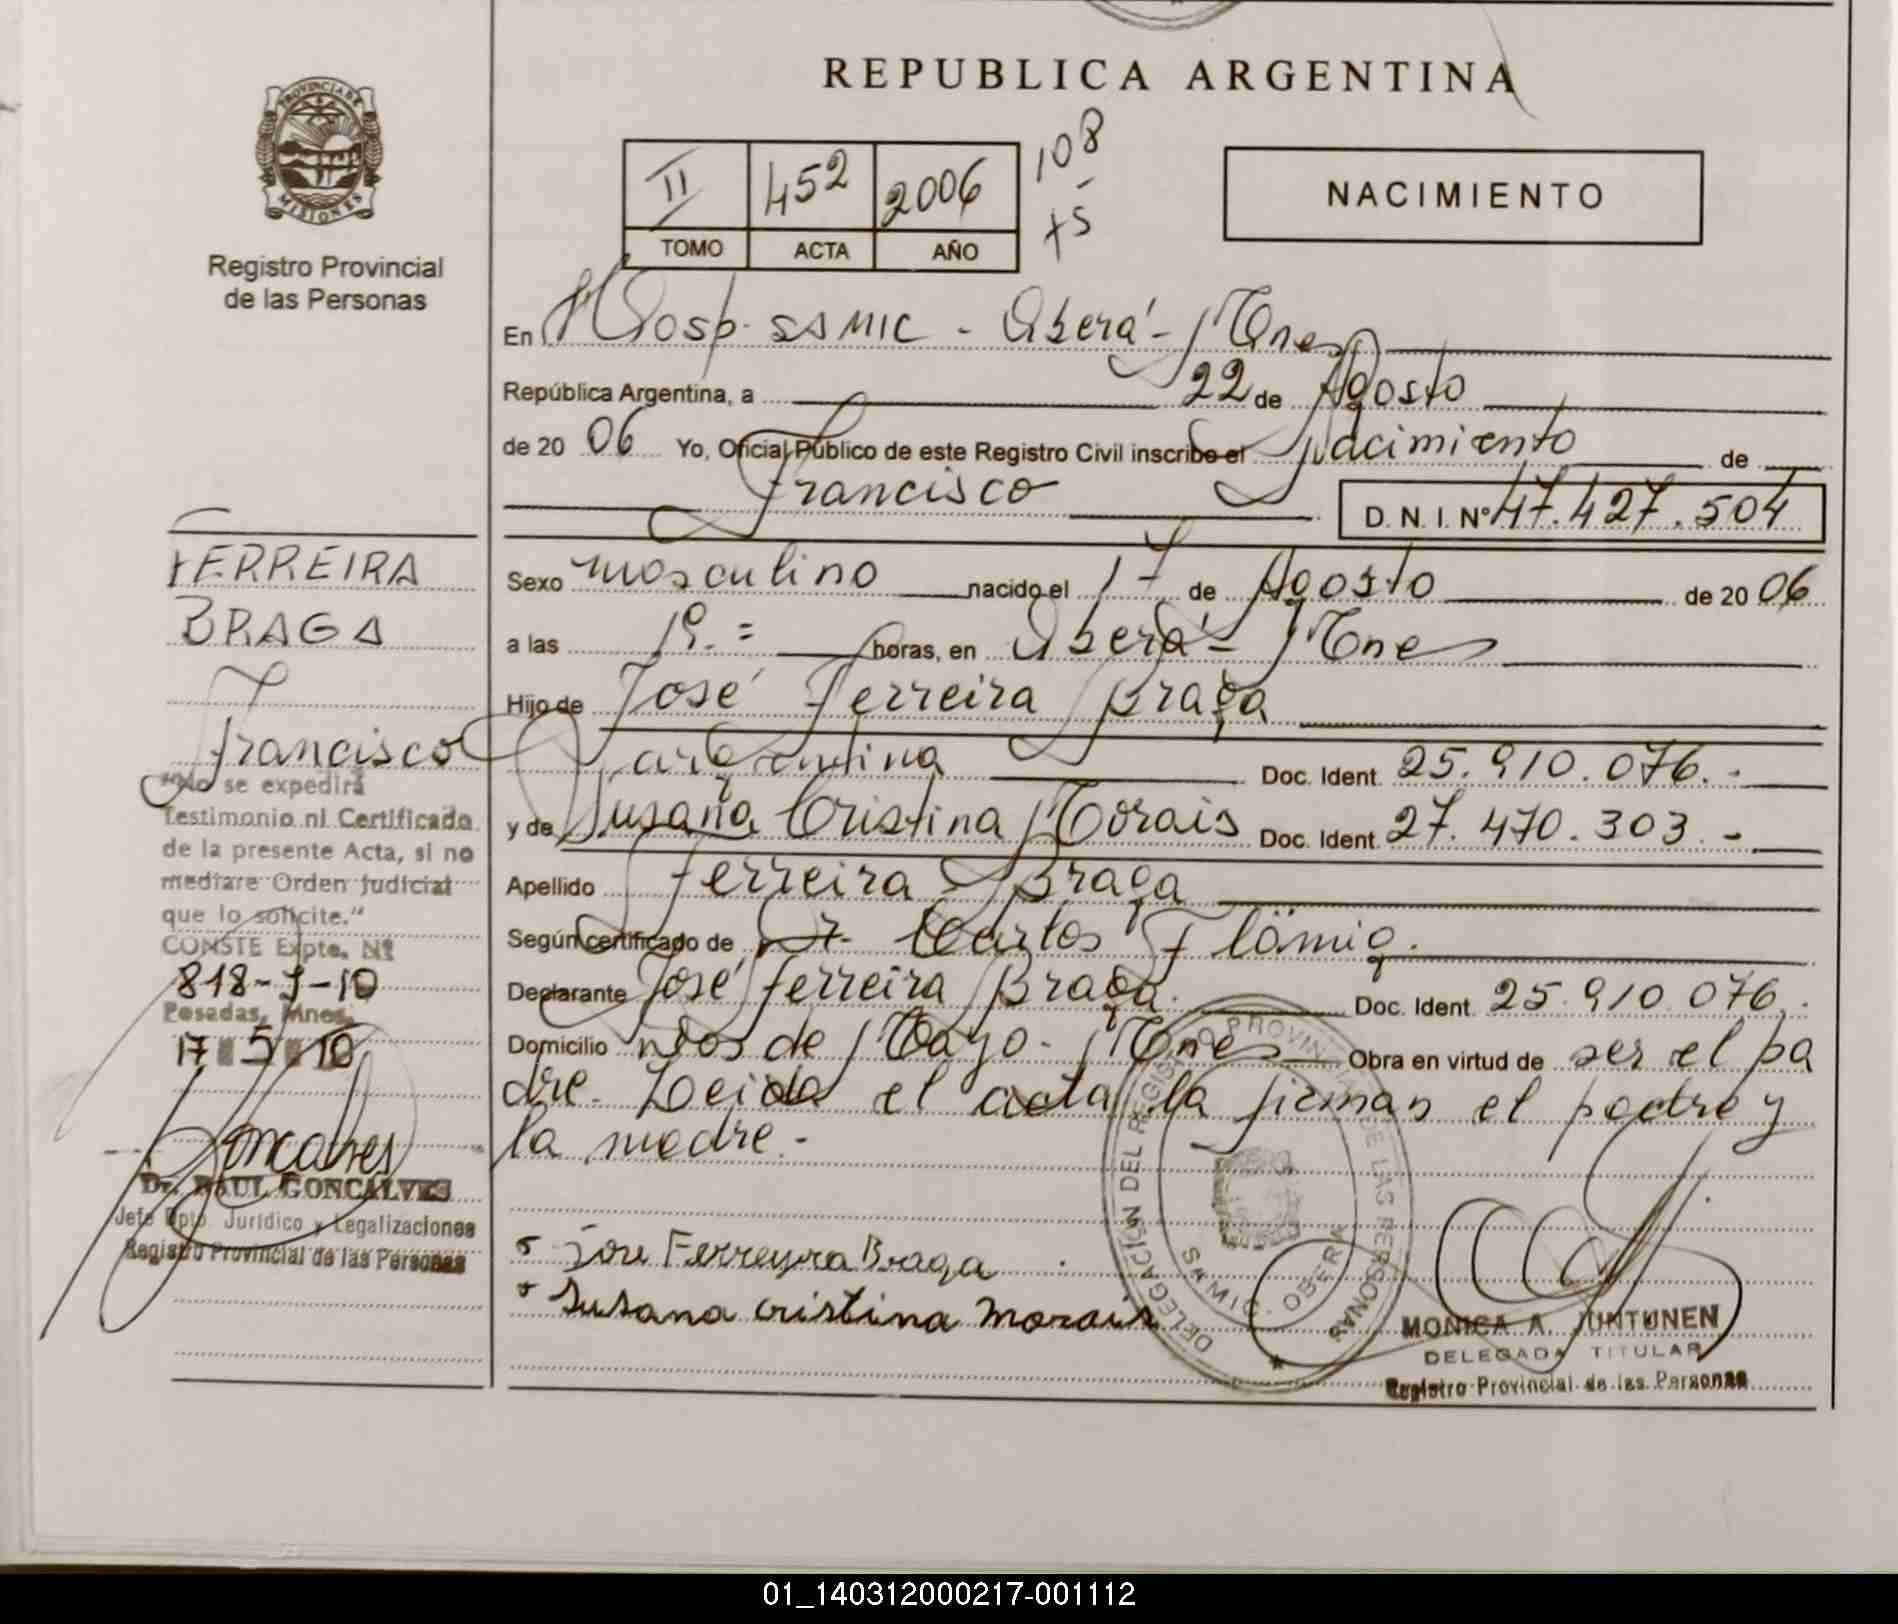 REPUBLICA ARGENTINA
PROVINCIA DE MISIONES
Registro Provincial
de las Personas
II 452 2006
TOMO ACTA AÑO
108
NACIMIENTO
En Hosp. SAMIC - Oberá - Mnes
República Argentina, a 22 de Agosto
de 20 06 Yo, Oficial Público de este Registro Civil inscribo el Nacimiento de
Francisco
D. N. I. Nº 47.427.504
Sexo masculino nacido el 17 de Agosto de 20 06
a las horas, en Oberá - Mnes
Hijo de José Ferreira Braga
argentina Doc. Ident. 25.910.076.-
y de Susana Cristina Morais Doc. Ident. 27.470.303.-
Apellido Ferreira Braga
Según certificado de Carlos Flömig.
Declarante José Ferreira Braga. Doc. Ident. 25.910.076.
Domicilio Dos de Mayo - Mnes Obra en virtud de ser el pa
dre. Leida el acta la firman el padre y
la madre.-
Jose Ferreyra Braga
Susana Cristina Morais
DELEGACIÓN DEL REGISTRO PROVINCIAL DE LAS PERSONAS
OBERA
MONICA A. JUNTUNEN
DELEGADA TITULAR
Registro Provincial de las Personas
FERREIRA
BRAGA
Francisco
"No se expedirá
Testimonio ni Certificado
de la presente Acta, si no
mediare Orden judicial
que lo solicite."
CONSTE Expte. Nº
818-J-10
Posadas, Mnes.
17 5 10
Dr. RAUL GONCALVES
Jefe Dpto. Jurídico y Legalizaciones
Registro Provincial de las Personas
01_140312000217-001112